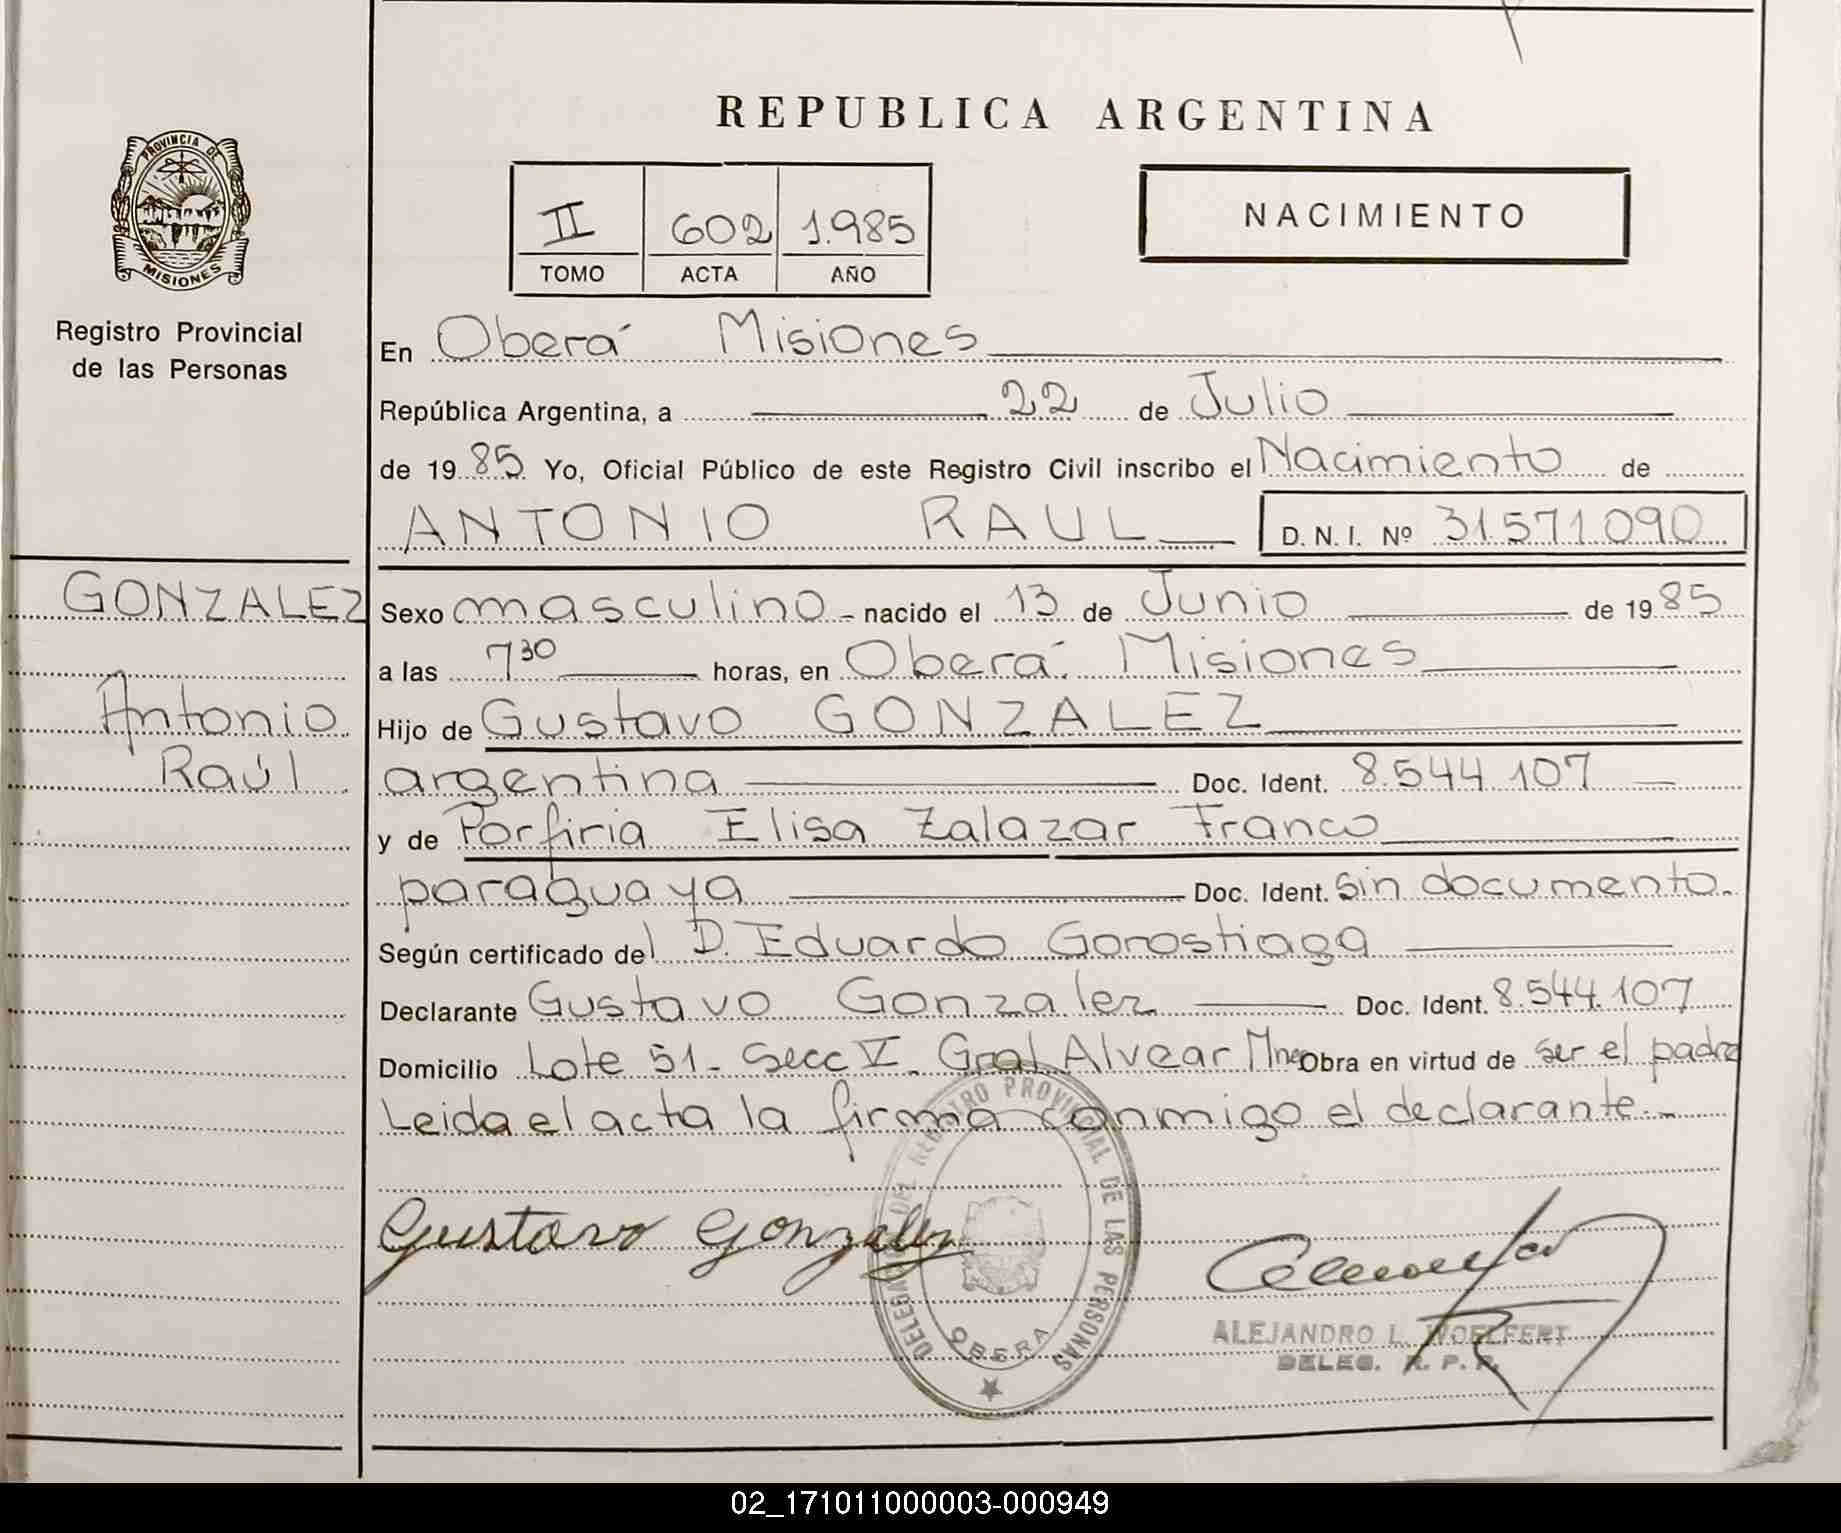 REPUBLICA ARGENTINA
PROVINCIA DE
MISIONES
Registro Provincial
de las Personas
II 602 1.985
TOMO ACTA AÑO
NACIMIENTO
En Oberá Misiones
República Argentina, a 22 de Julio
de 1985 Yo, Oficial Público de este Registro Civil inscribo el Nacimiento de
ANTONIO RAUL D. N. I. Nº 31.571.090
GONZALEZ
Antonio
Raúl
Sexo masculino - nacido el 13 de Junio de 1985
a las 7 30 horas, en Oberá Misiones
Hijo de Gustavo GONZALEZ
argentina Doc. Ident. 8.544.107
y de Porfiria Elisa Zalazar Franco
paraguaya Doc. Ident. Sin documento.
Según certificado del D. Eduardo Gorostiaga
Declarante Gustavo Gonzalez Doc. Ident. 8.544.107
Domicilio Lote 51 - Secc V. Gral Alvear Mnes Obra en virtud de ser el padre
Leida el acta la firma conmigo el declarante.-
Gustavo Gonzalez
DELEGACION DEL REGISTRO PROVINCIAL DE LAS PERSONAS
OBERA
ALEJANDRO L. WOELFERT
DELEG. R. P. P.
02_171011000003-000949